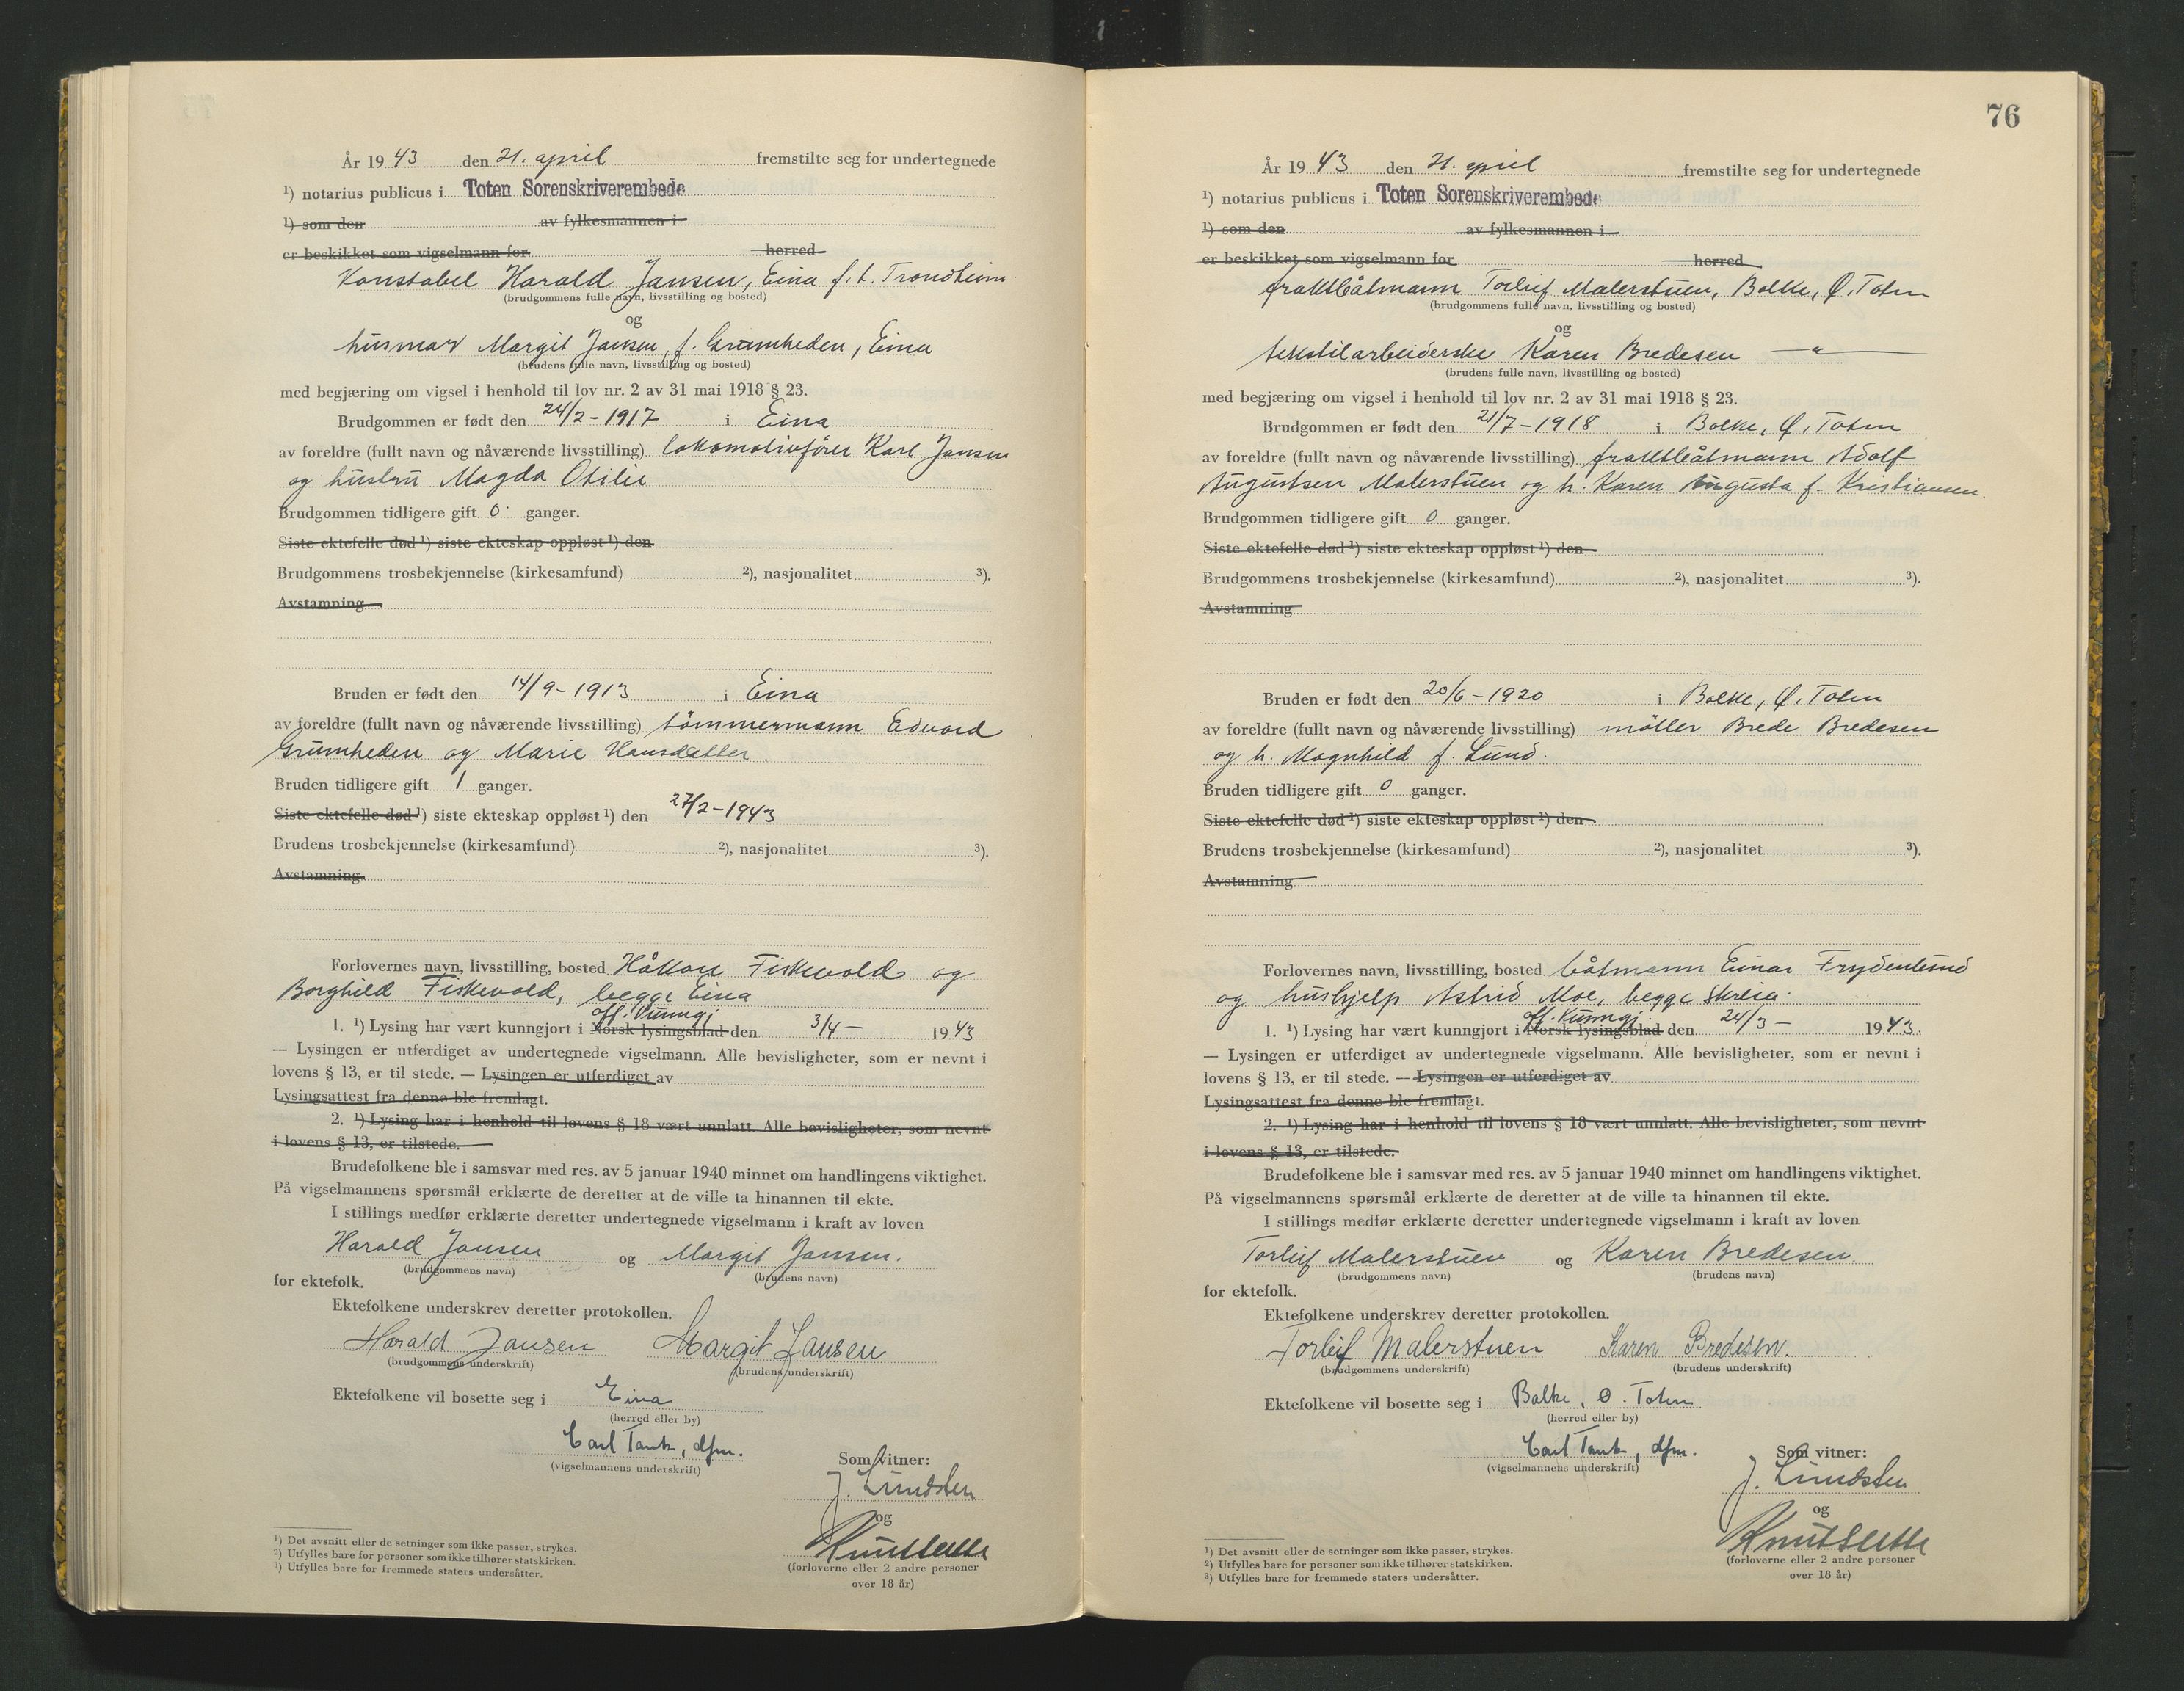 År 1943 den 21. april fremstilte seg for undertegnede
¹) notarius publicus i Toten Sorenskriverembede
¹) som den av fylkesmannen i
er beskikket som vigselmann for herred
Konstabel Harald Jansen, Eina f.t. Trondheim.
(brudgommens fulle navn, livsstilling og bosted)
og
husmor Margit Jansen, f. Grumheden, Eina
(brudens fulle navn, livsstilling og bosted)
med begjæring om vigsel i henhold til lov nr. 2 av 31 mai 1918 § 23.
Brudgommen er født den 24/2-1917 i Eina
av foreldre (fullt navn og nåværende livsstilling) lokomotivfører Karl Jansen
og hustru Magda Otilie
Brudgommen tidligere gift 0 ganger.
Siste ektefelle død ¹) siste ekteskap oppløst ¹) den
Brudgommens trosbekjennelse (kirkesamfund) ²), nasjonalitet ³).
Avstamning
Bruden er født den 14/9-1913 i Eina
av foreldre (fullt navn og nåværende livsstilling) tømmermann Edvard
Grumheden og Marie Hansdatter.
Bruden tidligere gift 1 ganger.
Siste ektefelle død ¹) siste ekteskap oppløst ¹) den 27/2-1943
Brudens trosbekjennelse (kirkesamfund) ²), nasjonalitet ³).
Avstamning
Forlovernes navn, livsstilling, bosted Håkon Fiskvold og
Borghild Fiskvold, begge Eina
off. Kunngj.
1. ¹) Lysing har vært kunngjort i Norsk lysingsblad den 3/4- 1943
— Lysingen er utferdiget av undertegnede vigselmann. Alle bevisligheter, som er nevnt i
lovens § 13, er til stede. — Lysingen er utferdiget av
Lysingsattest fra denne ble fremlagt.
2. ¹) Lysing har i henhold til lovens § 18 vært unnlatt. Alle bevisligheter, som nevnt
i lovens § 13, er tilstede.
Brudefolkene ble i samsvar med res. av 5 januar 1940 minnet om handlingens viktighet.
På vigselmannens spørsmål erklærte de deretter at de ville ta hinannen til ekte.
I stillings medfør erklærte deretter undertegnede vigselmann i kraft av loven
Harald Jansen og Margit Jansen.
(brudgommens navn) (brudens navn)
for ektefolk.
Ektefolkene underskrev deretter protokollen.
Harald Jansen Margit Jansen
(brudgommens underskrift) (brudens underskrift)
Ektefolkene vil bosette seg i Eina
(herred eller by)
Carl Tank, dfm.
(vigselmannens underskrift)
Som vitner:
J. Lundsten
og
Knut Slette
(forloverne eller 2 andre personer
over 18 år)
¹) Det avsnitt eller de setninger som ikke passer, strykes.
²) Utfylles bare for personer som ikke tilhører statskirken.
¹) Utfylles bare for fremmede staters undersåtter.
76
År 1943 den 21. april fremstilte seg for undertegnede
¹) notarius publicus i Toten Sorenskriverembede
¹) som den av fylkesmannen i
er beskikket som vigselmann for herred
fraktbåtmann Torleif Malerstuen, Balke, Ø. Toten
(brudgommens fulle navn, livsstilling og bosted)
og
tekstilarbeiderske Karen Bredesen —"—
(brudens fulle navn, livsstilling og bosted)
med begjæring om vigsel i henhold til lov nr. 2 av 31 mai 1918 § 23.
Brudgommen er født den 21/7-1918 i Balke, Ø. Toten
av foreldre (fullt navn og nåværende livsstilling) fraktbåtmann Adolf
Augustsen Malerstuen og h. Karen Augusta f. Kristiansen.
Brudgommen tidligere gift 0 ganger.
Siste ektefelle død ¹) siste ekteskap oppløst ¹) den
Brudgommens trosbekjennelse (kirkesamfund) ²), nasjonalitet ³).
Avstamning
Bruden er født den 20/6-1920 i Balke, Ø. Toten
av foreldre (fullt navn og nåværende livsstilling) møller Brede Bredesen
og h. Magnhild f. Lund.
Bruden tidligere gift 0 ganger.
Siste ektefelle død ¹) siste ekteskap oppløst ¹) den
Brudens trosbekjennelse (kirkesamfund) ²), nasjonalitet ³).
Avstamning
Forlovernes navn, livsstilling, bosted båtmann Einar Frydenlund
og hushjelp Astrid Moe, begge Skreia.
off. Kunngj.
1. ¹) Lysing har vært kunngjort i Norsk lysingsblad den 24/3- 1943.
— Lysingen er utferdiget av undertegnede vigselmann. Alle bevisligheter, som er nevnt i
lovens § 13, er til stede. — Lysingen er utferdiget av
Lysingsattest fra denne ble fremlagt.
2. ¹) Lysing har i henhold til lovens § 18 vært unnlatt. Alle bevisligheter, som nevnt
i lovens § 13, er tilstede.
Brudefolkene ble i samsvar med res. av 5 januar 1940 minnet om handlingens viktighet.
På vigselmannens spørsmål erklærte de deretter at de ville ta hinannen til ekte.
I stillings medfør erklærte deretter undertegnede vigselmann i kraft av loven
Torleif Malerstuen og Karen Bredesen.
(brudgommens navn) (brudens navn)
for ektefolk.
Ektefolkene underskrev deretter protokollen.
Torleif Malerstuen Karen Bredesen.
(brudgommens underskrift) (brudens underskrift)
Ektefolkene vil bosette seg i Balke, Ø. Toten
(herred eller by)
Carl Tank, dfm.
(vigselmannens underskrift)
Som vitner:
J. Lundsten
og
Knut Slette
(forloverne eller 2 andre personer
over 18 år)
¹) Det avsnitt eller de setninger som ikke passer, strykes.
²) Utfylles bare for personer som ikke tilhører statskirken.
³) Utfylles bare for fremmede staters undersåtter.